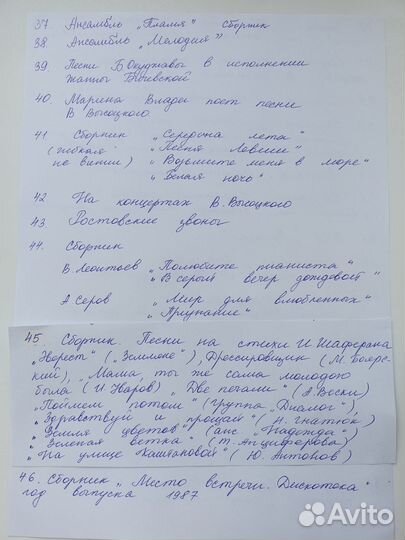 37 Ансамбль „Пламя" сборник
38 Ансамбль „Мелодия"
39 Песни Б Окуджавы в исполнении
Жанны Бичевской
40. Марина Влади поет песни
В Высоцкого
41 Сборник „Середина лета"
(гибкая „Певня
не винил) „Возьмите меня в море"
„Белая ночь"
42 На концертах В. Высоцкого
43. Ростовские звоны
44. Сборник
В. Леонтьев „Полюбите пианиста"
„В серый вечер дождевой"
А Серов „Мир для влюбленных"
„Признание"
45. Сборник. Песни на стихи И. Шаферана
„Эверест" („Земляне"), Дрессировщик (М. Боярс-
кий), „Мама, ты же сама молодою
была (И Уваров) „Две печали" (А Воски)
„Поймем потом" (группа „Диалог")
„Здравствуй и прощай" (Н. Гнатюк)
„Земля цветов" (анс „Надежда")
„Зеленая ветка" (Т. Анциферова)
„На улице Каштановой" (Ю. Антонов)
46. Сборник „Место встречи. Дискотека"
год выпуска 1987
Avito